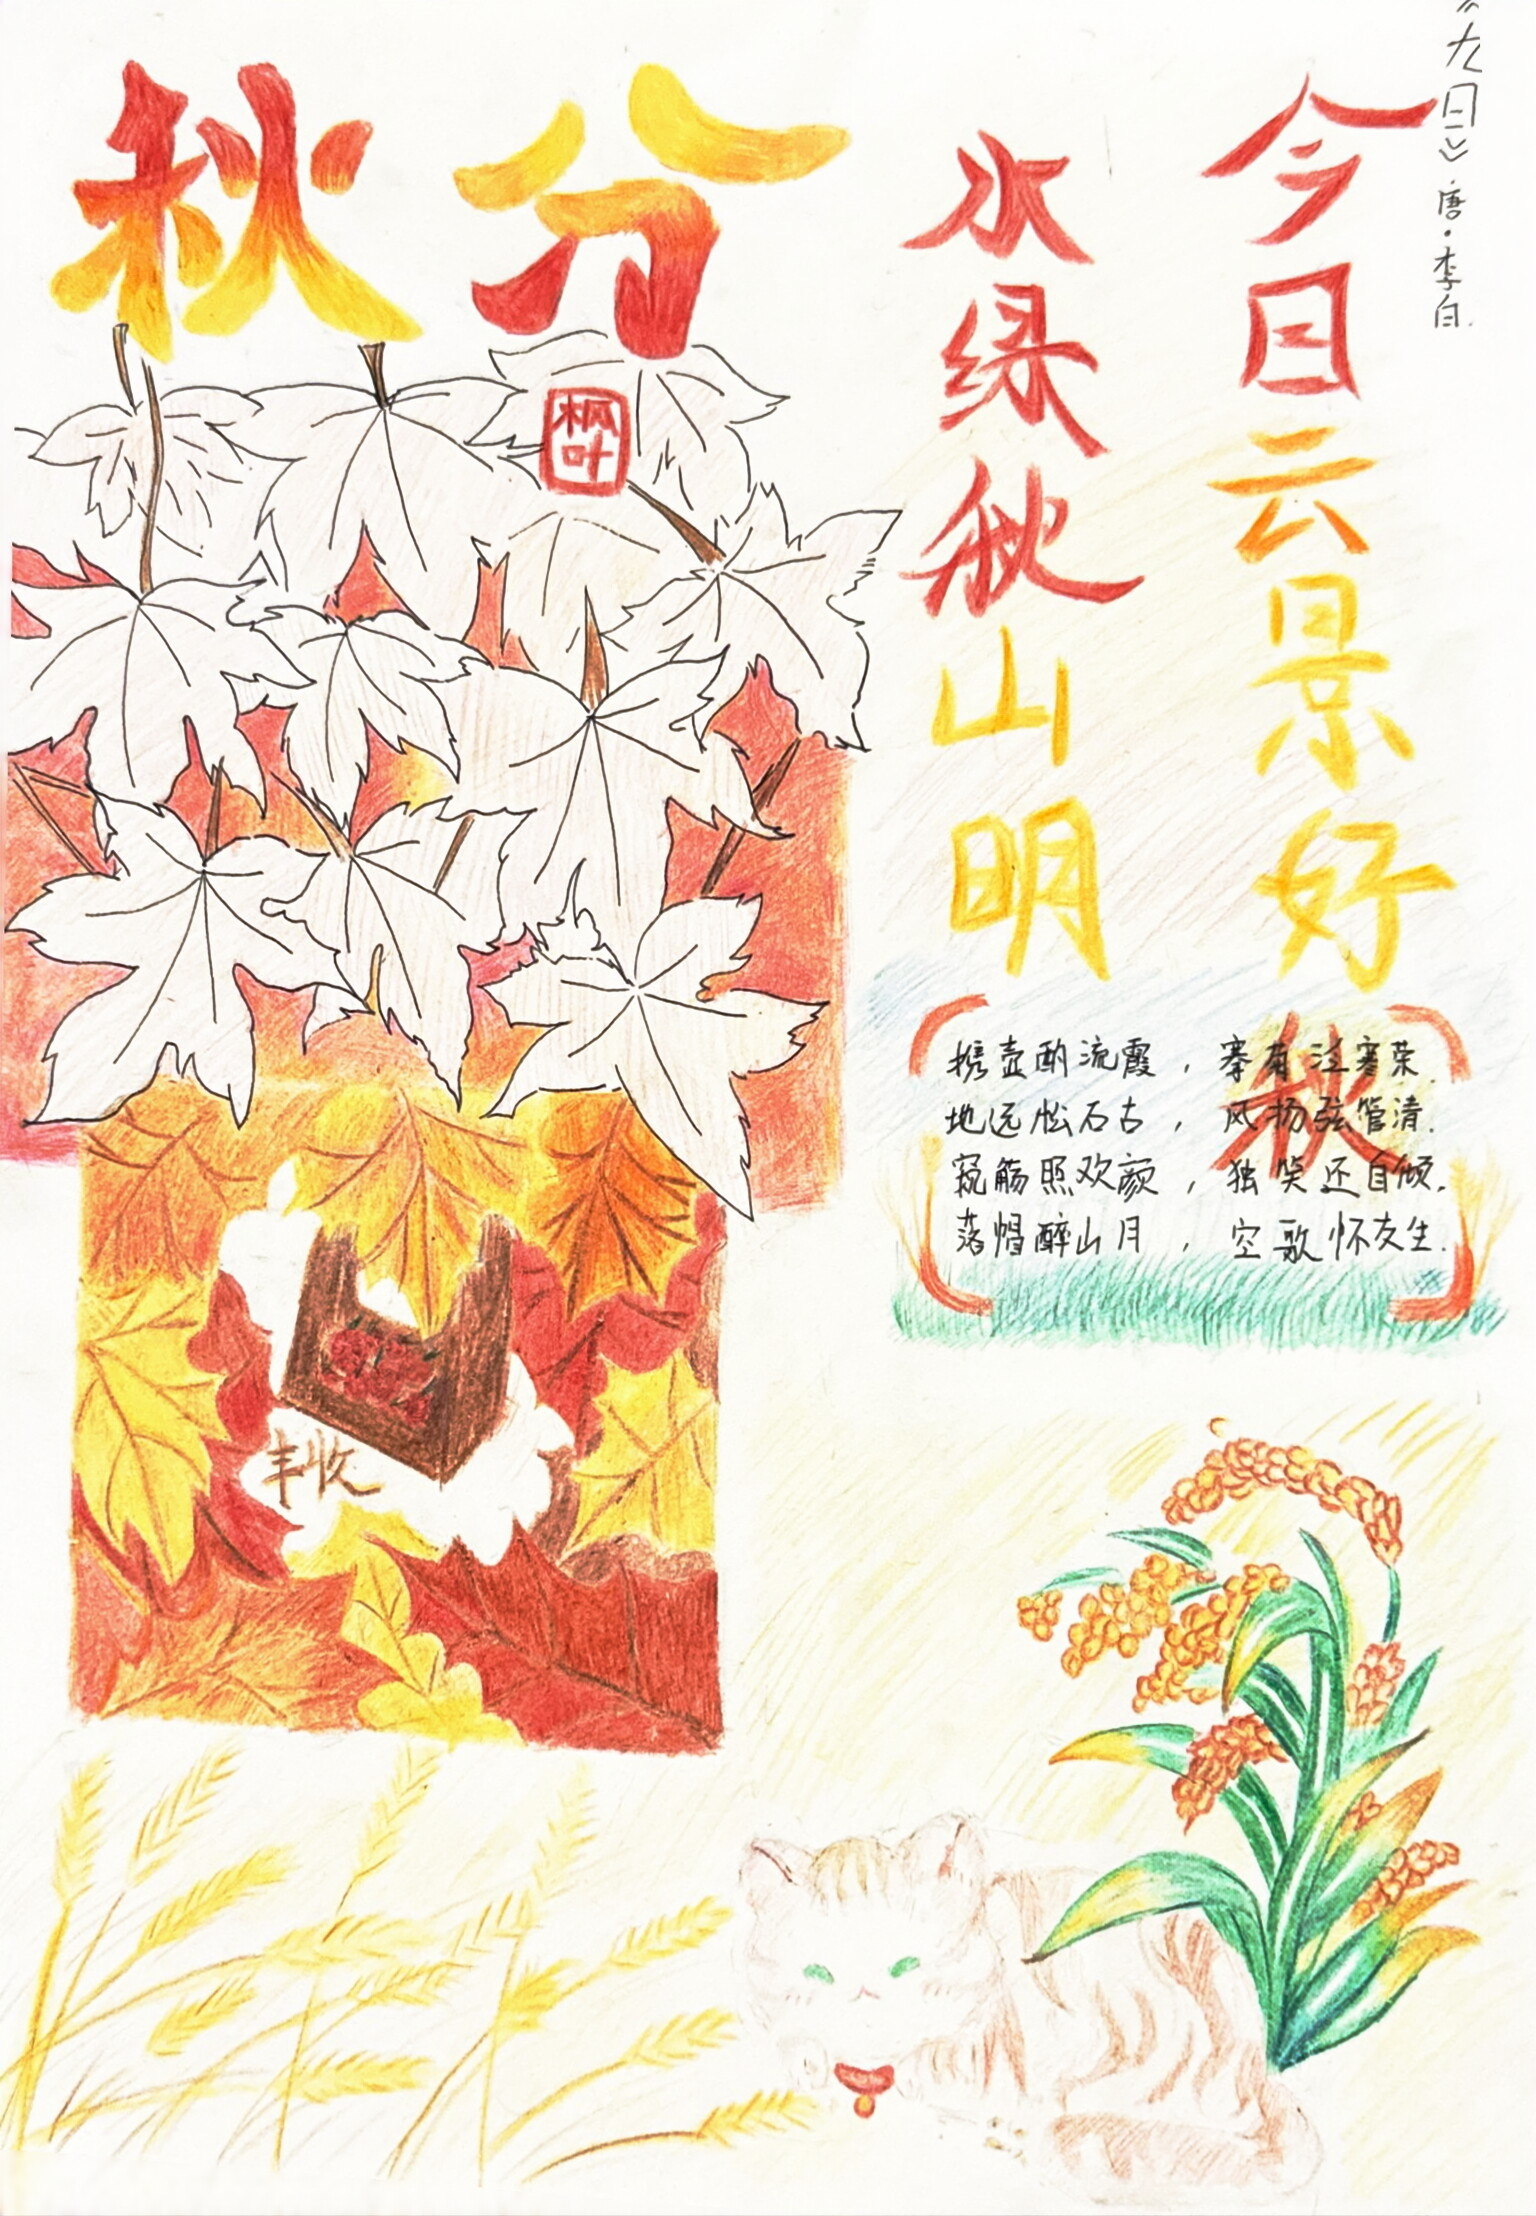 秋分
枫叶
《九日》唐·李白.
今日云景好
水绿秋山明
秋
携壶酌流霞，搴菊泛寒荣.
地远松石古，风扬弦管清.
窥觞照欢颜，独笑还自倾.
落帽醉山月，空歌怀友生.
丰收